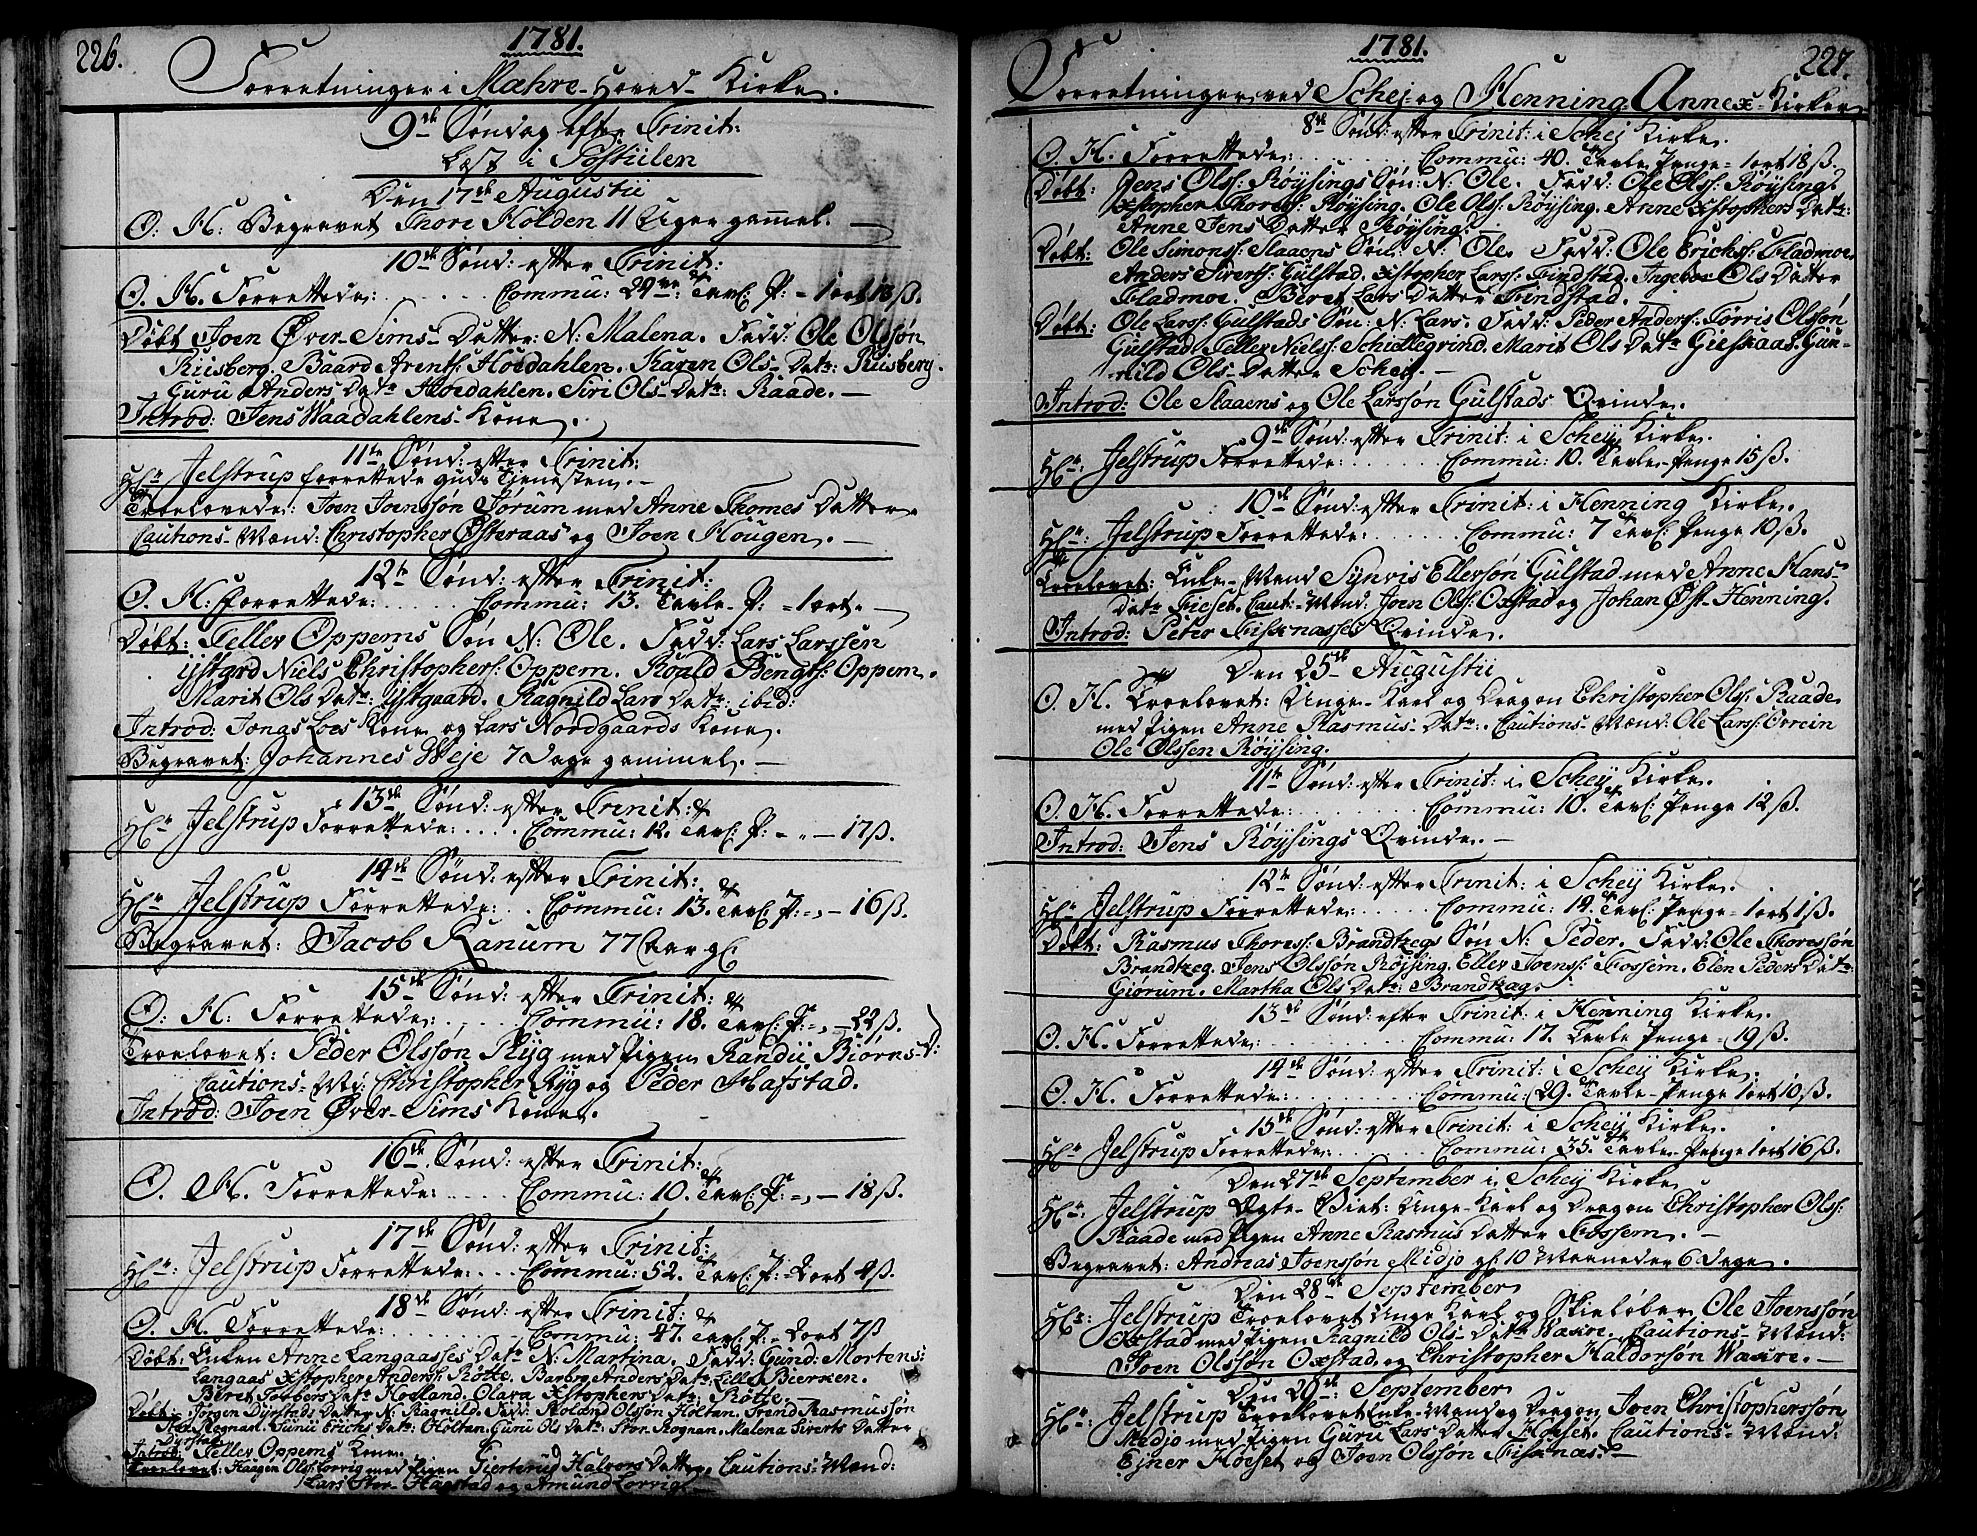 226.
1781.
Forretninger i Mæhre-Hoved-Kirke.
9de Søndag efter Trinit:
Læst i Postillen
Den 17de Augustii
O. H: Begravet Thore Kolden 11 Uger gammel. —
10de Sønd: efter Trinit:
O. H. Forrettede: ...... Commu: 29 Tavl: P: = 1 ort 18 ß.
Døbt Joen Øver-Sims-Datter: N: Malena. Fadd: Ole Olssøn
Riisberg. Baard Arentss: Hoedahlen. Karen Ols-Datr: Riisberg.
Guru Anders Datr Hoedahlen. Siri Ols-Datr: Raade. —
Introd: Jens Waadahlens-Kone.
11te Sønd: efter Trinit:
Hr: Jelstrup forrettede Guds Tjenesten. —
Troelovede: Joen Joenssøn Sørum med Anne Thomes Datter
Cautions-Mænd: Christopher Østeraas og Joen Hougen. —
12te Sønd: efter Trinit:
O. H: Forrettede: ...... Commu: 13. Tavle-P: = 1 ort. —
Døbt: Teller Oppems Søn N: Ole. Fadd: Lars Larssen
ÿstgrd Niels Christophers: Oppem. Roald Bengts: Oppem.
Marit Ols Datr: ÿstgaard. Ragnild Lars Datr: ibid:
Introd: Jonas Loes Kone og Lars Nordgaards Kone.
Begravet: Johannes Weje 7 Dage gammel. —
13de Sønd: efter Trinit:
Hr Jelstrup Forrettede: .... Commu: 12. Tavl: P: = „ — 17 ß.
14de Sønd: efter Trinit:
Hr Jelstrup Forrettede: .. Commu: 13. Tavl: P: = „ — 16 ß.
Begravet: Jacob Ranum 77 Aar gl:
15de Sønd: efter Trinit:
O. H. Forrettede: .... Commu: 18. Tavl: P: = „ — 22 ß.
Troelovet: Peder Olssøn Ryg med Pigen Randii Biørns-D:
Cautions-M: Christopher Ryg og Peder Hafstad.
Introd: Joen Øver-Sims Kone.
16de Sønd: efter Trinit:
O. H. Forrettede: .... Commu: 10. Tavl: P: = „ — 18 ß.
17de Sønd: efter Trinit:
Hr: Jelstrup Forrettede: ... Commu: 52. Tavl: P: = 2 ort 4 ß.
18de Sønd: efter Trinit:
O. H. Forrettede: ........ Commu: 47. Tavl: P: = 2 ort 7 ß
Døbt: Enken Anne Langaasses Datr N: Martina. Fadd: Gund: Mortens:
Langaas Xstopher Anderss: Rotte. Barbr: Anders Datr: Lille Bierken.
Beret Torbers Datr Hoeland. Olava Xstophers Datr: Rotte.
Døbt: Jørgen Dyrstads Datter N: Ragnild. Fadd: Roland Olssøn Holtan. Trend Rasmussøn
Rognan. Gunii Erichs Datr: Holtan. Guru Ols Datr: Stor-Rognan. Malena Siverts Datter
Dyrstad.
Introd: Teller Oppems Kone.
Troelovet: Haagen Olss: Lorvig med Pigen Giertrud Halvors Datter. Cautions: Mænd:
Lars Stor-Hagstad og Amund Lorvig.
1781.
227.
Forretninger ved Schej- og Henning-Annex-Kirker
8de Sønd: efter Trinit: i Schej Kirke.
O. H. Forrettede: ........ Commu: 40. Tavle Penge = 1 ort 18 ß.
Døbt: Jens Olss: Røysings Søn: N: Ole. Fadd: Ole Olss: Røysing.
Xstopher Thorss: Røysing. Ole Olss: Røysing. Anne Xstophers Datr:
Anne Jens Datter Røysing. —
Døbt: Ole Simonss: Slaaens Søn: N: Ole. Fadd: Ole Erichs: Fladmoe.
Anders Siverss: Gulstad. Xstopher Larss: Findstad. Ingebor Ols Datter
Fladmoe. Beret Lars Datter Findstad. —
Døbt: Ole Larss: Gulstads Søn: N: Lars. Fadd: Peder Anderss: Torris Olssøn
Gulstad. Teller Nielss: Schiellegrind. Marit Ols Datr Gieskaas. Gun-
nild Ols-Datter Schej. —
Introd: Ole Slaaens og Ole Larssøn Gulstads Qvinde.
9de Sønd: efter Trinit: i Scheÿ Kirke.
Hr: Jelstrup Forrettede: ...... Commu: 10. Tavle-Penge 15 ß.
10de Sønd: efter Trinit: i Henning Kirke.
Hr: Jelstrup Forrettede: ...... Commu: 7 Tavl: Penge 10 ß.
Troelovet: Enke-Mand Synvis Ellersøn Gulstad med Anne Hans-
datr Fieset. Caut:-Mænd: Joen Olss: Oxstad og Johan Øst-Henning.
Introd: Peter Fisknasses Qvinde.
Den 25de Augustii
O. H. Troelovet: Unge-Karl og Dragon Christopher Olss: Raade
med Pigen Anne Rasmus-Datr:. Cautions-Mænd: Ole Larss:
Ole Olssen Røysing.
11te Sønd: efter Trinit: i Scheÿ Kirke.
O. H. Forrettede: ........ Commu: 10. Tavl: Penge 12 ß.
Introd: Jens Røysings Qvinde. —
12te Sønd: efter Trinit: i Scheÿ Kirke.
Hr Jelstrup Forrettede: ..... Commu: 19. Tavl: Penge = 1 ort 1 ß.
Døbt: Rasmus Thoress: Brandtzegs Søn N: Peder. Fadd: Ole Thoressøn
Brandtzeg. Jens Olssøn Røysing. Eller Joenss: Fossem. Elen Peders Datr:
Giørum. Martha Ols Datr: Brandtzag.
13de Sønd: efter Trinit: i Henning Kirke.
O. H. Forrettede: ........ Commu: 17. Tavle Penge = 19 ß.
14de Sønd: efter Trinit: i Scheÿ Kirke.
O. H. Forrettede: ........ Commu: 29. Tavle-Penge 1 ort 10 ß.
15de Sønd: efter Trinit: i Scheÿ Kirke.
Hr: Jelstrup Forrettede: ...... Commu: 35. Tavle-Penge 1 ort 16 ß.
Den 27de September i Scheÿ Kirke
Hr: Jelstrup Ægte-Viet: Unge-Karl og Dragon Christopher Olss:
Raade med Pigen Anne Rasmus Datter Fossem. —
Begravet: Andreas Joenssøn Midjo gl: 10 Maaneder 6 Dage.
Den 28de September
Hr: Jelstrup Troelovet Unge Karl og Skieløber Ole Joenssøn
Oxstad med Pigen Ragnild Ols-Datr Waxre. Cautions-Mænd:
Joen Olssøn Oxstad og Christopher Haldorsøn Waxre. —
Den 29de: September
Hr: Jelstrup Troelovet Enke-Mand og Dragon Joen Christopherssøn
Midjo med Pigen Guru Lars Datter Hoeset. Cautions-Mænd:
Ejner Hoeset og Joen Olssøn Fisknas. —